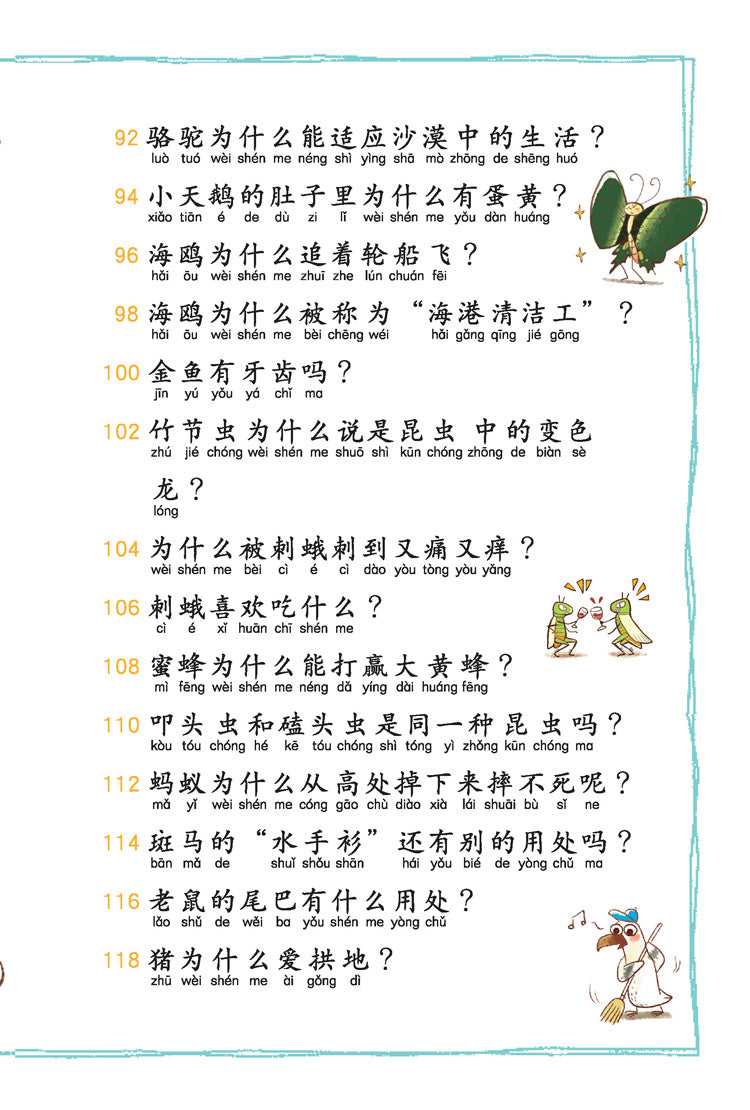 92 骆驼为什么能适应沙漠中的生活？
luò tuó wèi shén me néng shì yìng shā mò zhōng de shēng huó
94 小天鹅的肚子里为什么有蛋黄？
xiǎo tiān é de dù zi lǐ wèi shén me yǒu dàn huáng
96 海鸥为什么追着轮船飞？
hǎi ōu wèi shén me zhuī zhe lún chuán fēi
98 海鸥为什么被称为“海港清洁工”？
hǎi ōu wèi shén me bèi chēng wéi hǎi gǎng qīng jié gōng
100 金鱼有牙齿吗？
jīn yú yǒu yá chǐ ma
102 竹节虫为什么说是昆虫中的变色
zhú jié chóng wèi shén me shuō shì kūn chóng zhōng de biàn sè
龙？
lóng
104 为什么被刺蛾刺到又痛又痒？
wèi shén me bèi cì é cì dào yòu tòng yòu yǎng
106 刺蛾喜欢吃什么？
cì é xǐ huān chī shén me
108 蜜蜂为什么能打赢大黄蜂？
mì fēng wèi shén me néng dǎ yíng dài huáng fēng
110 叩头虫和磕头虫是同一种昆虫吗？
kòu tóu chóng hé kē tóu chóng shì tóng yì zhǒng kūn chóng ma
112 蚂蚁为什么从高处掉下来摔不死呢？
mǎ yǐ wèi shén me cóng gāo chù diào xià lái shuāi bù sǐ ne
114 斑马的“水手衫”还有别的用处吗？
bān mǎ de shuǐ shǒu shān hái yǒu bié de yòng chǔ ma
116 老鼠的尾巴有什么用处？
lǎo shǔ de wěi ba yǒu shén me yòng chǔ
118 猪为什么爱拱地？
zhū wèi shén me ài gǒng dì